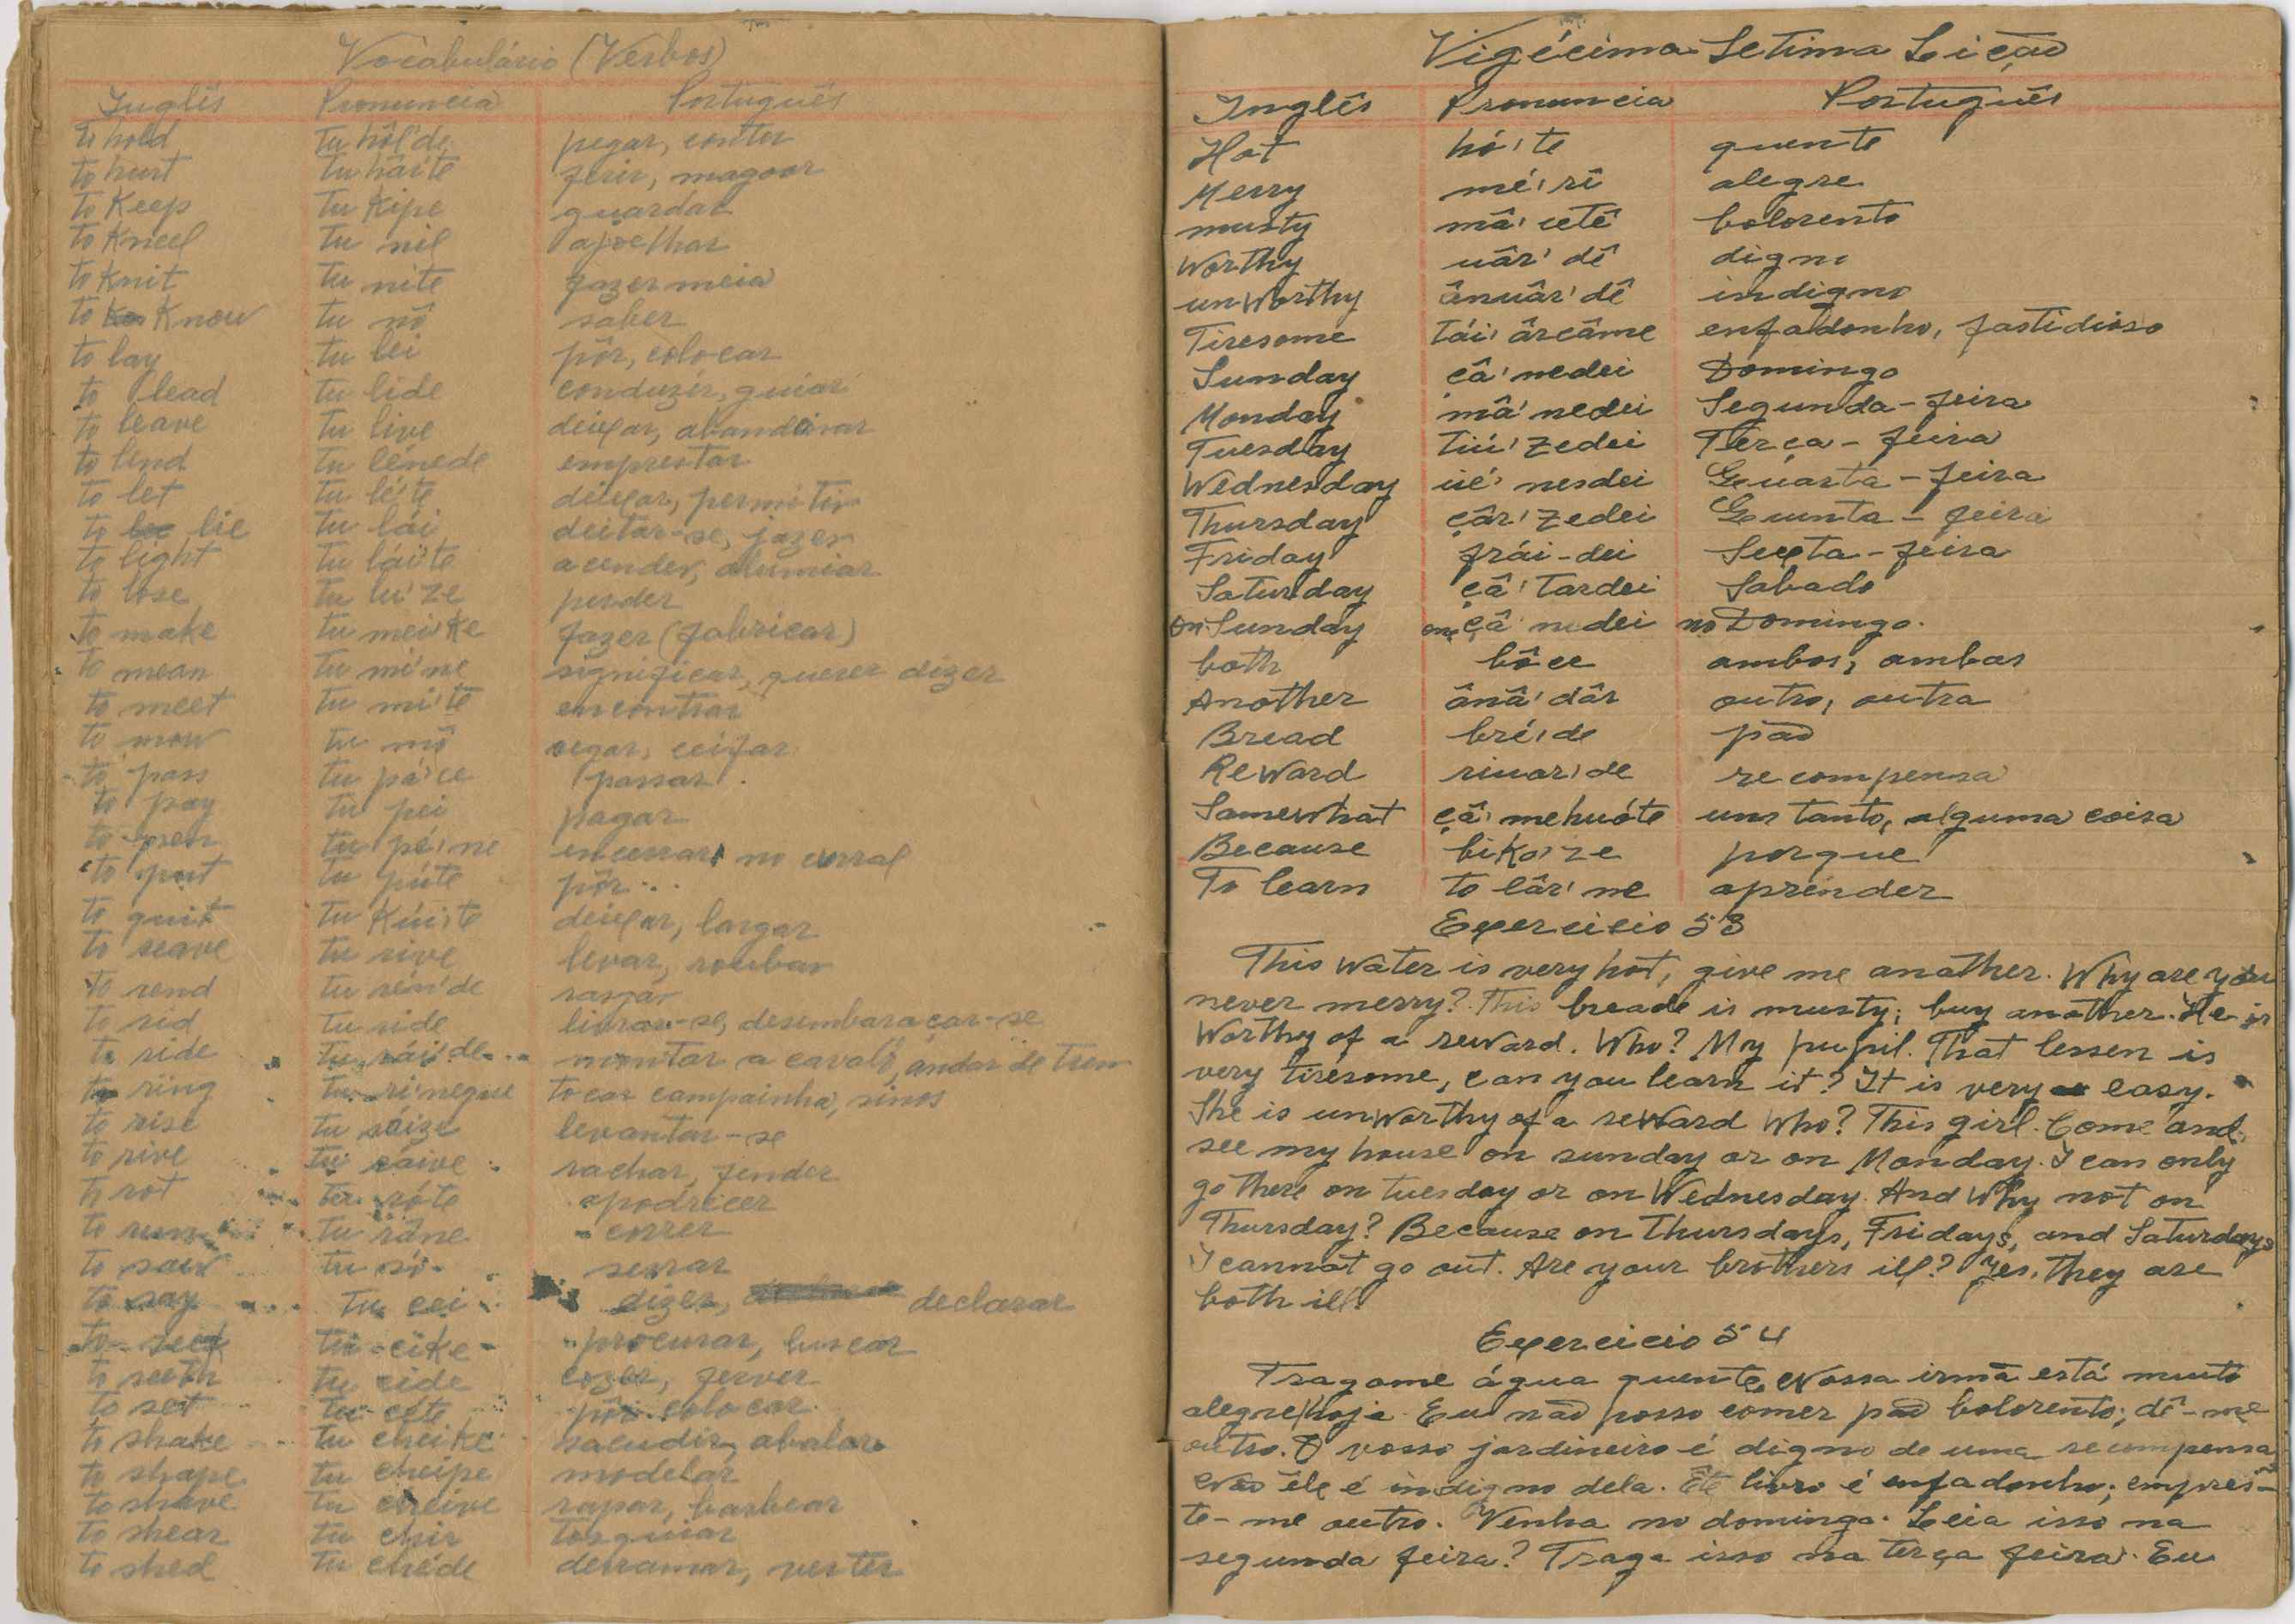 Vocabulário (Verbos)
Inglês Pronuncia Português
to hold tu hôl'de pegar, conter
to hurt tu hâr'te ferir, magoar
to Keep tu Kipe guardar
to Kneel tu nil ajoelhar
to Knit tu nite fazer meia
to Know tu nô saber
to lay tu lei pôr, colocar
to lead tu lide conduzir, guiar
to leave tu live deixar, abandonar
to lend tu lénede emprestar
to let tu lé'te deixar, permitir
to lie tu lái deitar-se, jazer
to light tu lái'te acender, alumiar
to lose tu lu'ze perder
to make tu mei'ke fazer (fabricar)
to mean tu mi'ne significar, querer dizer
to meet tu mi'te encontrar
to mow tu mô segar, ceifar
to pass tu pá'ce passar
to pay tu pei pagar
to pen tu pé'ne encerrar no curral
to put tu púte pôr
to quit tu Kúi'te deixar, largar
to reave tu rive levar, roubar
to rend tu rén'de rasgar
to rid tu ride livrar-se, desembaraçar-se
to ride tu rái'de montar a cavalo, andar de trem
to ring tu ri'negue tocar campainha, sinos
to rise tu ráize levantar-se
to rive tu ráive rachar, fender
to rot tu róte apodrecer
to run tu râne correr
to saw tu só serrar
to say tu cei dizer, declarar
to seek tu cike procurar, buscar
to seeth tu cide cozer, ferver
to set tu céte pôr, colocar
to shake tu cheike sacudir, abalar
to shape tu cheipe modelar
to shave tu cheive rapar, barbear
to shear tu chir tosquiar
to shed tu chéde derramar, verter
Vigécima Setima Lição
Inglês Pronuncia Português
Hot hó'te quente
Merry mé'rî alegre
musty mâ'cetê bolorento
Worthy uâr'dê digno
unWorthy ânuâr'dê indigno
Tiresome tái'ârcâme enfadonho, fastidioso
Sunday çâ'nedei Domingo
Monday mâ'nedei Segunda-feira
Tuesday tiú'zedei Terça-feira
Wednesday ué'nesdei Quarta-feira
Thursday çâr'zedei Quinta-feira
Friday frái-dei Sexta-feira
Saturday çâ'tardei Sabado
on Sunday one çâ'nedei no Domingo.
both bôce ambos, ambas
Another ânâ'dâr outro, outra
Bread bré'de pão
ReWard riuar'de recompensa
SomeWhat çâ'mehuóte uns tanto, alguma coisa
Because biKo'ze porque
To learn to lâr'ne aprender
Exercicio 53
This Water is very hot, give me another. Why are you
never merry? This breade is musty; buy another. He is
Worthy of a reWard. Who? My pupil. That lessen is
very tiresome, can you learn it? It is very easy.
She is unWorthy of a reWard Who? This girl. Come and
see my house on sunday or on Monday. I can only
go there on tuesday or on Wednesday. And Why not on
Thursday? Because on thursdays, Fridays, and Saturdays
I cannot go out. Are your brothers ill? Yes, they are
both ill.
Exercicio 54
Tragame água quente. Nossa irmã está muito
alegre hoje. Eu não posso comer pão bolorento; dê-me
outro. O vosso jardineiro é digno de uma recompensa
Não êle é indigno dela. Êste livro é enfadonho; empres-
te-me outro. Venha no domingo. Leia isso na
segunda feira? Traga isso na terça feira. Eu